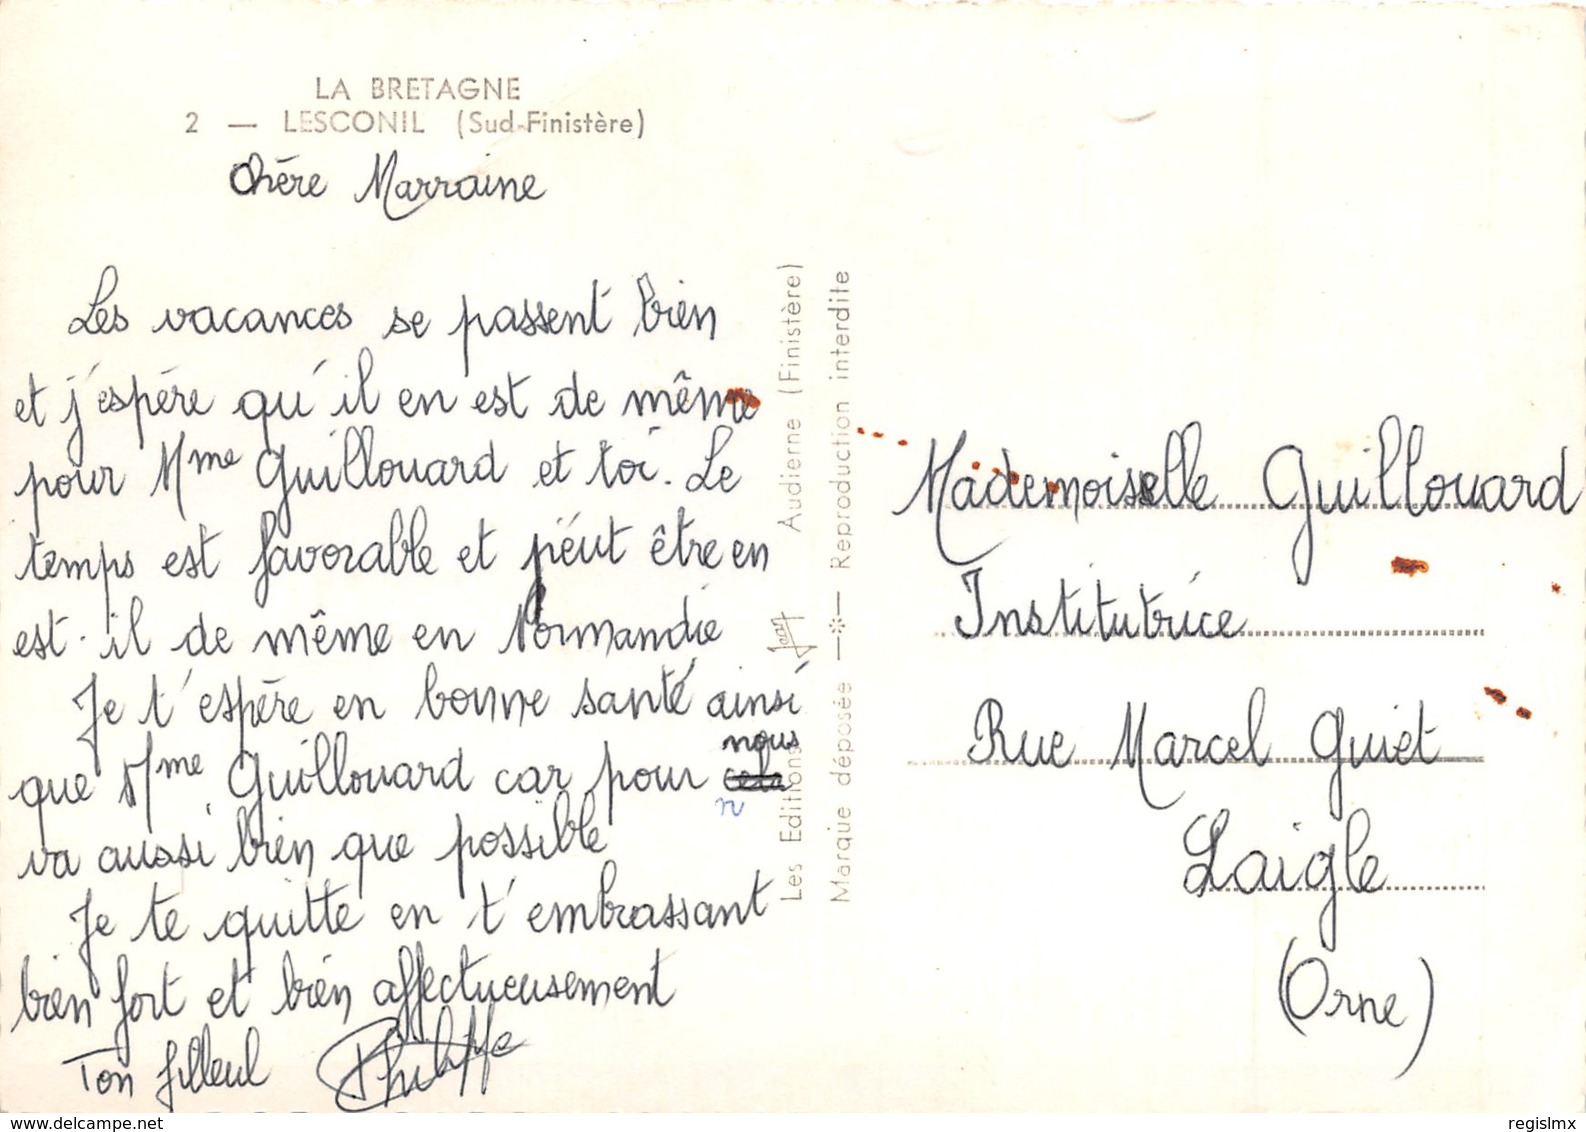 LA BRETAGNE
2 — LESCONIL (Sud-Finistère)
Chère Marraine
Les vacances se passent bien
et j'espère qu'il en est de même
pour Mme Guillouard et toi. Le
temps est favorable et peut être en
est-il de même en Normandie
Je t'espère en bonne santé ainsi
que Mme Guillouard car pour nous
cela
n
va aussi bien que possible
Je te quitte en t'embrassant
bien fort et bien affectueusement
Ton filleul Philippe
Les Editions Jean Audierne (Finistère)
Marque déposée —※— Reproduction interdite
Mademoiselle Guillouard
Institutrice
Rue Marcel Guiet
Laigle
(Orne)
www.delcampe.net
regislmx